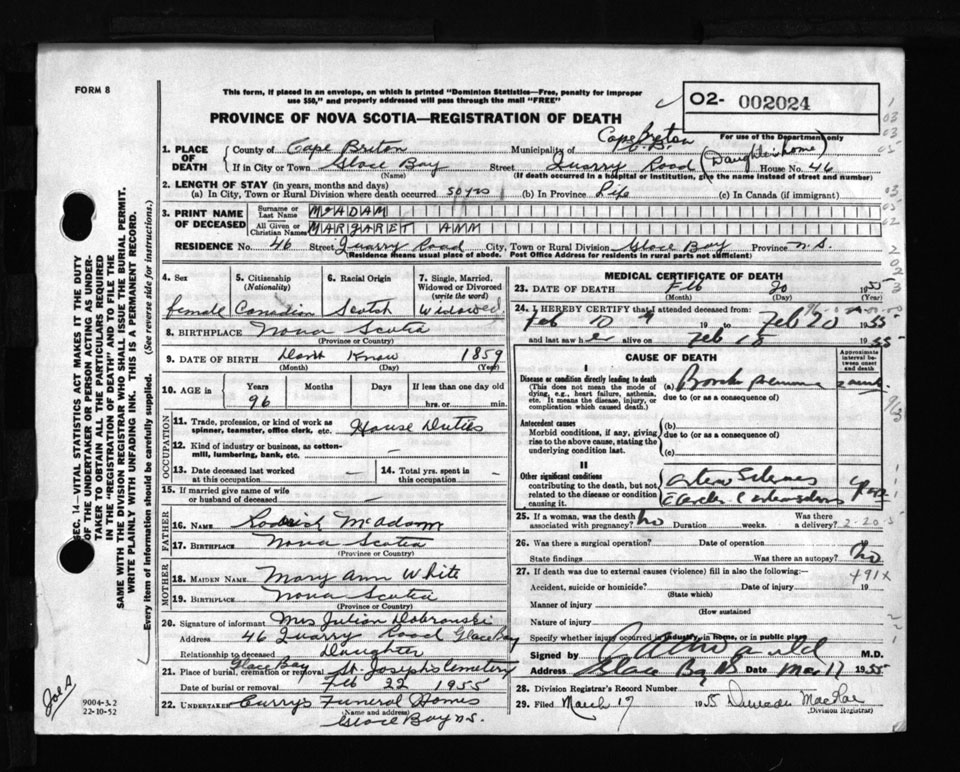 FORM 8
This form, if placed in an envelope, on which is printed "Dominion Statistics—Free, penalty for improper
use $50," and properly addressed will pass through the mail "FREE"
O2- 002024
PROVINCE OF NOVA SCOTIA—REGISTRATION OF DEATH
For use of the Department only
1. PLACE OF DEATH County of Cape Breton Municipality of Cape Breton
If in City or Town Glace Bay Street Quarry Road (Daughter's home) House No. 46
(Name) (If death occurred in a hospital or institution, give the name instead of street and number)
2. LENGTH OF STAY (in years, months and days)
(a) In City, Town or Rural Division where death occurred 50 yrs (b) In Province Life (c) In Canada (if immigrant)
3. PRINT NAME OF DECEASED Surname or Last Name McADAM
All Given or Christian Names MARGARET ANN
RESIDENCE No. 46 Street Quarry Road City, Town or Rural Division Glace Bay Province N.S.
(Residence means usual place of abode. Post Office Address for residents in rural parts not sufficient)
4. Sex female
5. Citizenship (Nationality) Canadian
6. Racial Origin Scotch
7. Single, Married, Widowed or Divorced (write the word) Widowed
8. BIRTHPLACE Nova Scotia
(Province or Country)
9. DATE OF BIRTH Dont Know 1859
(Month) (Day) (Year)
10. AGE in Years Months Days If less than one day old
96 hrs. or min.
OCCUPATION
11. Trade, profession, or kind of work as spinner, teamster, office clerk, etc. House Duties
12. Kind of industry or business, as cotton-mill, lumbering, bank, etc. —
13. Date deceased last worked at this occupation —
14. Total yrs. spent in this occupation —
15. If married give name of wife or husband of deceased —
FATHER
16. NAME Roderick McAdam
17. BIRTHPLACE Nova Scotia
(Province or Country)
MOTHER
18. MAIDEN NAME Mary Ann White
19. BIRTHPLACE Nova Scotia
(Province or Country)
20. Signature of informant Mrs Julian Dobronski
Address 46 Quarry Road Glace Bay
Relationship to deceased Daughter
21. Place of burial, cremation or removal Glace Bay St. Joseph's Cemetery
Date of burial or removal Feb 22 1955
22. UNDERTAKER Curry's Funeral Homes
(Name and address) Glace Bay N.S.
MEDICAL CERTIFICATE OF DEATH
23. DATE OF DEATH Feb 20 1955
(Month) (Day) (Year)
24. I HEREBY CERTIFY that I attended deceased from:
Feb 19 to Feb 20 1955
and last saw her alive on Feb 18 1955
CAUSE OF DEATH
Approximate interval between onset and death
I
Disease or condition directly leading to death (a)
(This does not mean the mode of dying, e.g., heart failure, asthenia, etc. It means the disease, injury, or complication which caused death.)
due to (or as a consequence of)
Antecedent causes (b)
Morbid conditions, if any, giving rise to the above cause, stating the underlying condition last.
due to (or as a consequence of)
(c)
II
Other significant conditions
contributing to the death, but not related to the disease or condition causing it.
25. If a woman, was the death associated with pregnancy? no Duration weeks. Was there a delivery?
2-20-5
26. Was there a surgical operation? Date of operation
State findings Was there an autopsy? no
27. If death was due to external causes (violence) fill in also the following:—
491X
Accident, suicide or homicide? Date of injury 19
(State which)
Manner of injury
(How sustained
Nature of injury
Specify whether injury occurred in industry, in home, or in public place
Signed by M.D.
Address Glace Bay NS Date Mar 17 1955
28. Division Registrar's Record Number
29. Filed March 17 1955 Duncan MacRae
(Division Registrar)
SEC. 14—VITAL STATISTICS ACT MAKES IT THE DUTY
OF THE UNDERTAKER OR PERSON ACTING AS UNDER-
TAKER TO OBTAIN ALL THE PARTICULARS REQUIRED
IN THE "REGISTRATION OF DEATH" AND TO FILE THE
SAME WITH THE DIVISION REGISTRAR WHO SHALL ISSUE THE BURIAL PERMIT.
WRITE PLAINLY WITH UNFADING INK. THIS IS A PERMANENT RECORD.
Every item of information should be carefully supplied. (See reverse side for instructions.)
9004-3.2
22-10-52